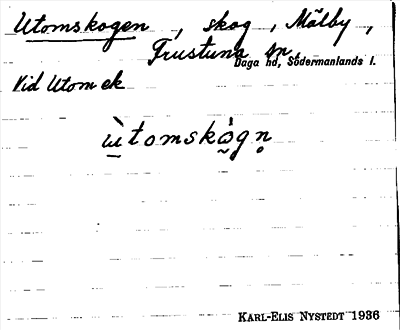 Utomskogen, skog, Mälby,
Frustuna sn,
Daga hd, Södermanlands l.
Vid Utomek
ùtomskògn̥
KARL-ELIS NYSTEDT 1936